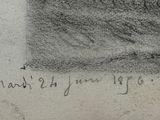 mardi 24 juin 1856.